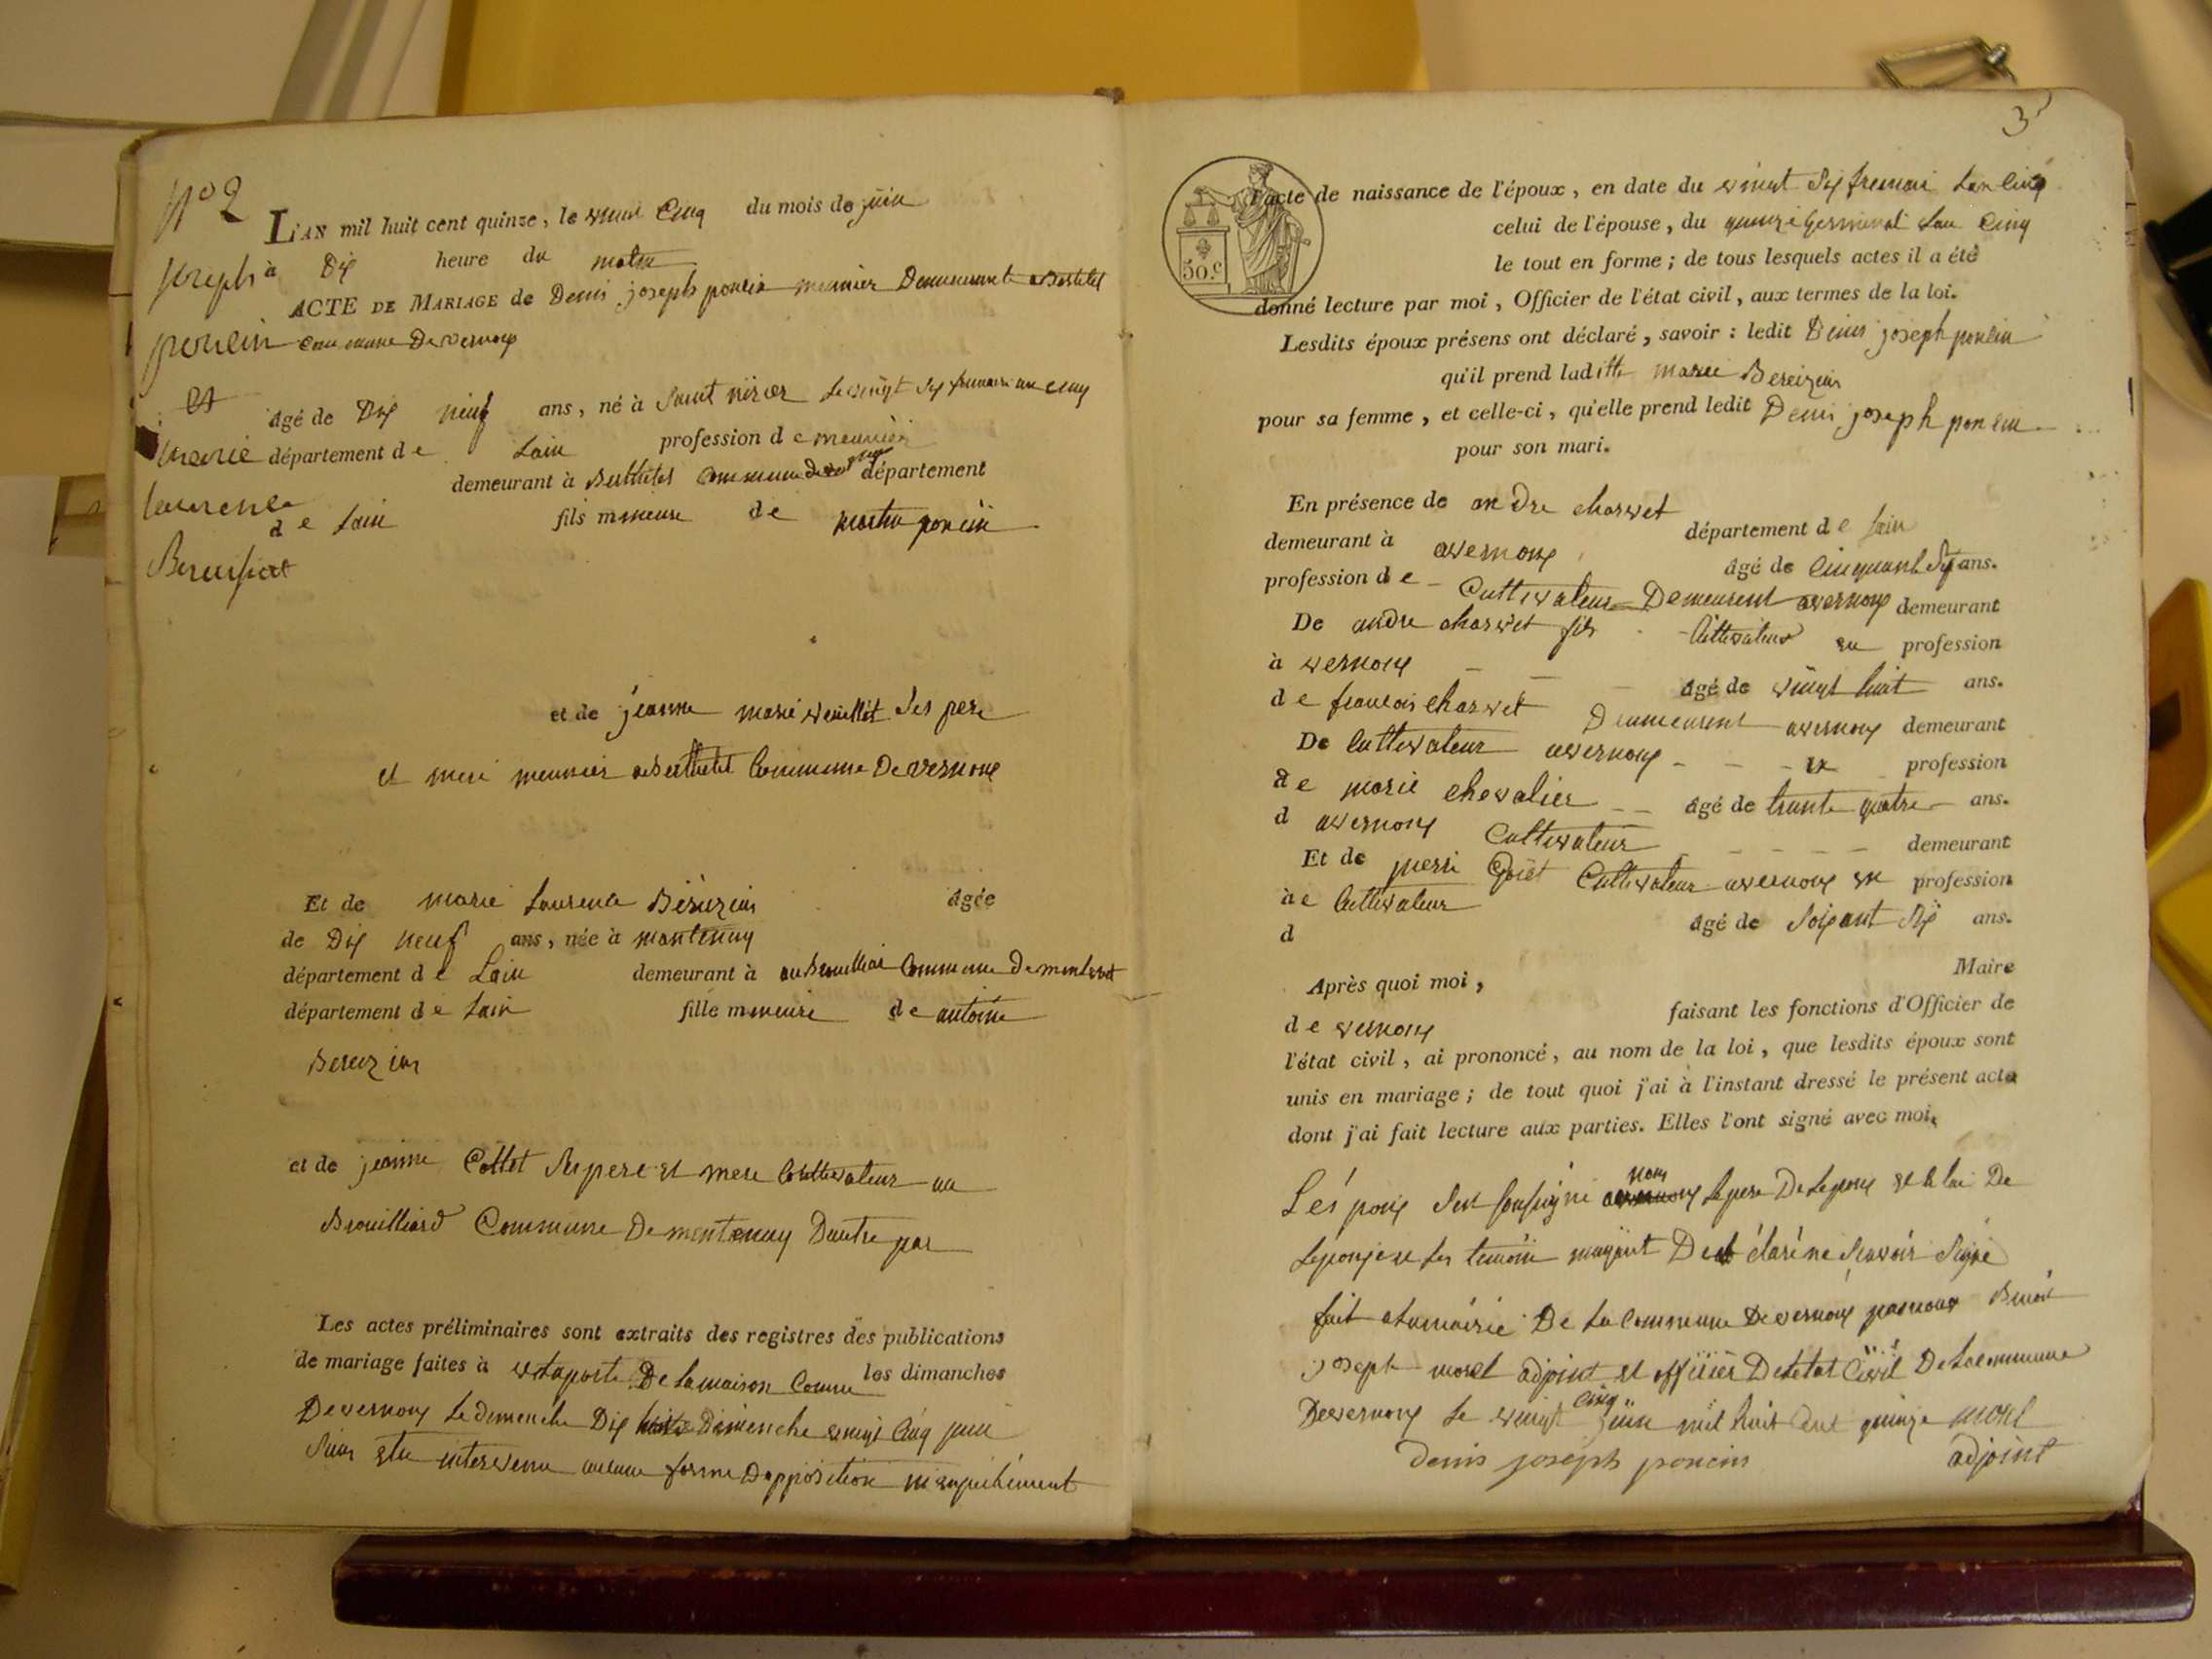 N° 2
Joseph
poncin
et
marie
laurence
L'AN mil huit cent quinze, le vint Cinq du mois de juin
à Dix heure du matin
ACTE DE MARIAGE de Denis joseph poncin meunier Demeurant
commune De vernoux
âgé de Dix neuf ans, né à Saint nizier le vingt six frimaire an cinq
département de Lain profession de meunier
demeurant à Commune de département
de Lain fils mineure de martin poncin
et de jeanne marie veuillet ses pere
et mere meunier Commune De vernoux
Et de marie Laurence Béréiziat âgée
de Dix neuf ans, née à mantenay
département de Lain demeurant à au Brouilliat Commune De
département de Lain fille mineure de antoine
Béréiziat
et de jeanne Cottet ses pere et mere Coultivateur au
Brouilliard Commune De mentenay Dautre par
Les actes préliminaires sont extraits des registres des publications
de mariage faites à De la maison Comune les dimanches
De vernoux Le demenche Dix Dimenche vingt Cinq juin
Sans intervenu aucune forme Dopposition ni empeichément
3
50.c
l'acte de naissance de l'époux, en date du vingt six frimaire Lan Cinq
celui de l'épouse, du quinze Germinal Lan Cinq
le tout en forme; de tous lesquels actes il a été
donné lecture par moi, Officier de l'état civil, aux termes de la loi.
Lesdits époux présens ont déclaré, savoir: ledit Denis joseph poncin
qu'il prend laditte marie Béréiziat
pour sa femme, et celle-ci, qu'elle prend ledit Denis joseph poncin
pour son mari.
En présence de andre charvet
demeurant à avernoux département de Lain
profession de Cultivateur âgé de Cinquante Six ans.
De andre charvet fils Demeurent avernoux demeurant
à vernoux Cultivateur profession
de francois charvet âgé de vingt huit ans.
De Cultivateur avernoux Demeurent avernoux demeurant
de marie chevalier profession
d avernoux Cultivateur âgé de trante quatre ans.
Et de Cultivateur avernoux demeurant
à e Cultivateur profession
d âgé de Soixant Six ans.
Après quoi moi, Maire
de vernoux faisant les fonctions d'Officier de
l'état civil, ai prononcé, au nom de la loi, que lesdits époux sont
unis en mariage; de tout quoi j'ai à l'instant dressé le présent acte
dont j'ai fait lecture aux parties. Elles l'ont signé avec moi.
Lépoux Set Sousigné nom Le pere De Lepoux De
Lepouse et les temoin mayant Déclaré ne Savoir Signé
fait a la mairie De La Commune De vernoux par nous Benoit
joseph morel adjoint et officier De letat Civil De La commune
De vernoux Le vingt cinq juin mil huit Cent quinze morel
denis joseph poncin adjoint